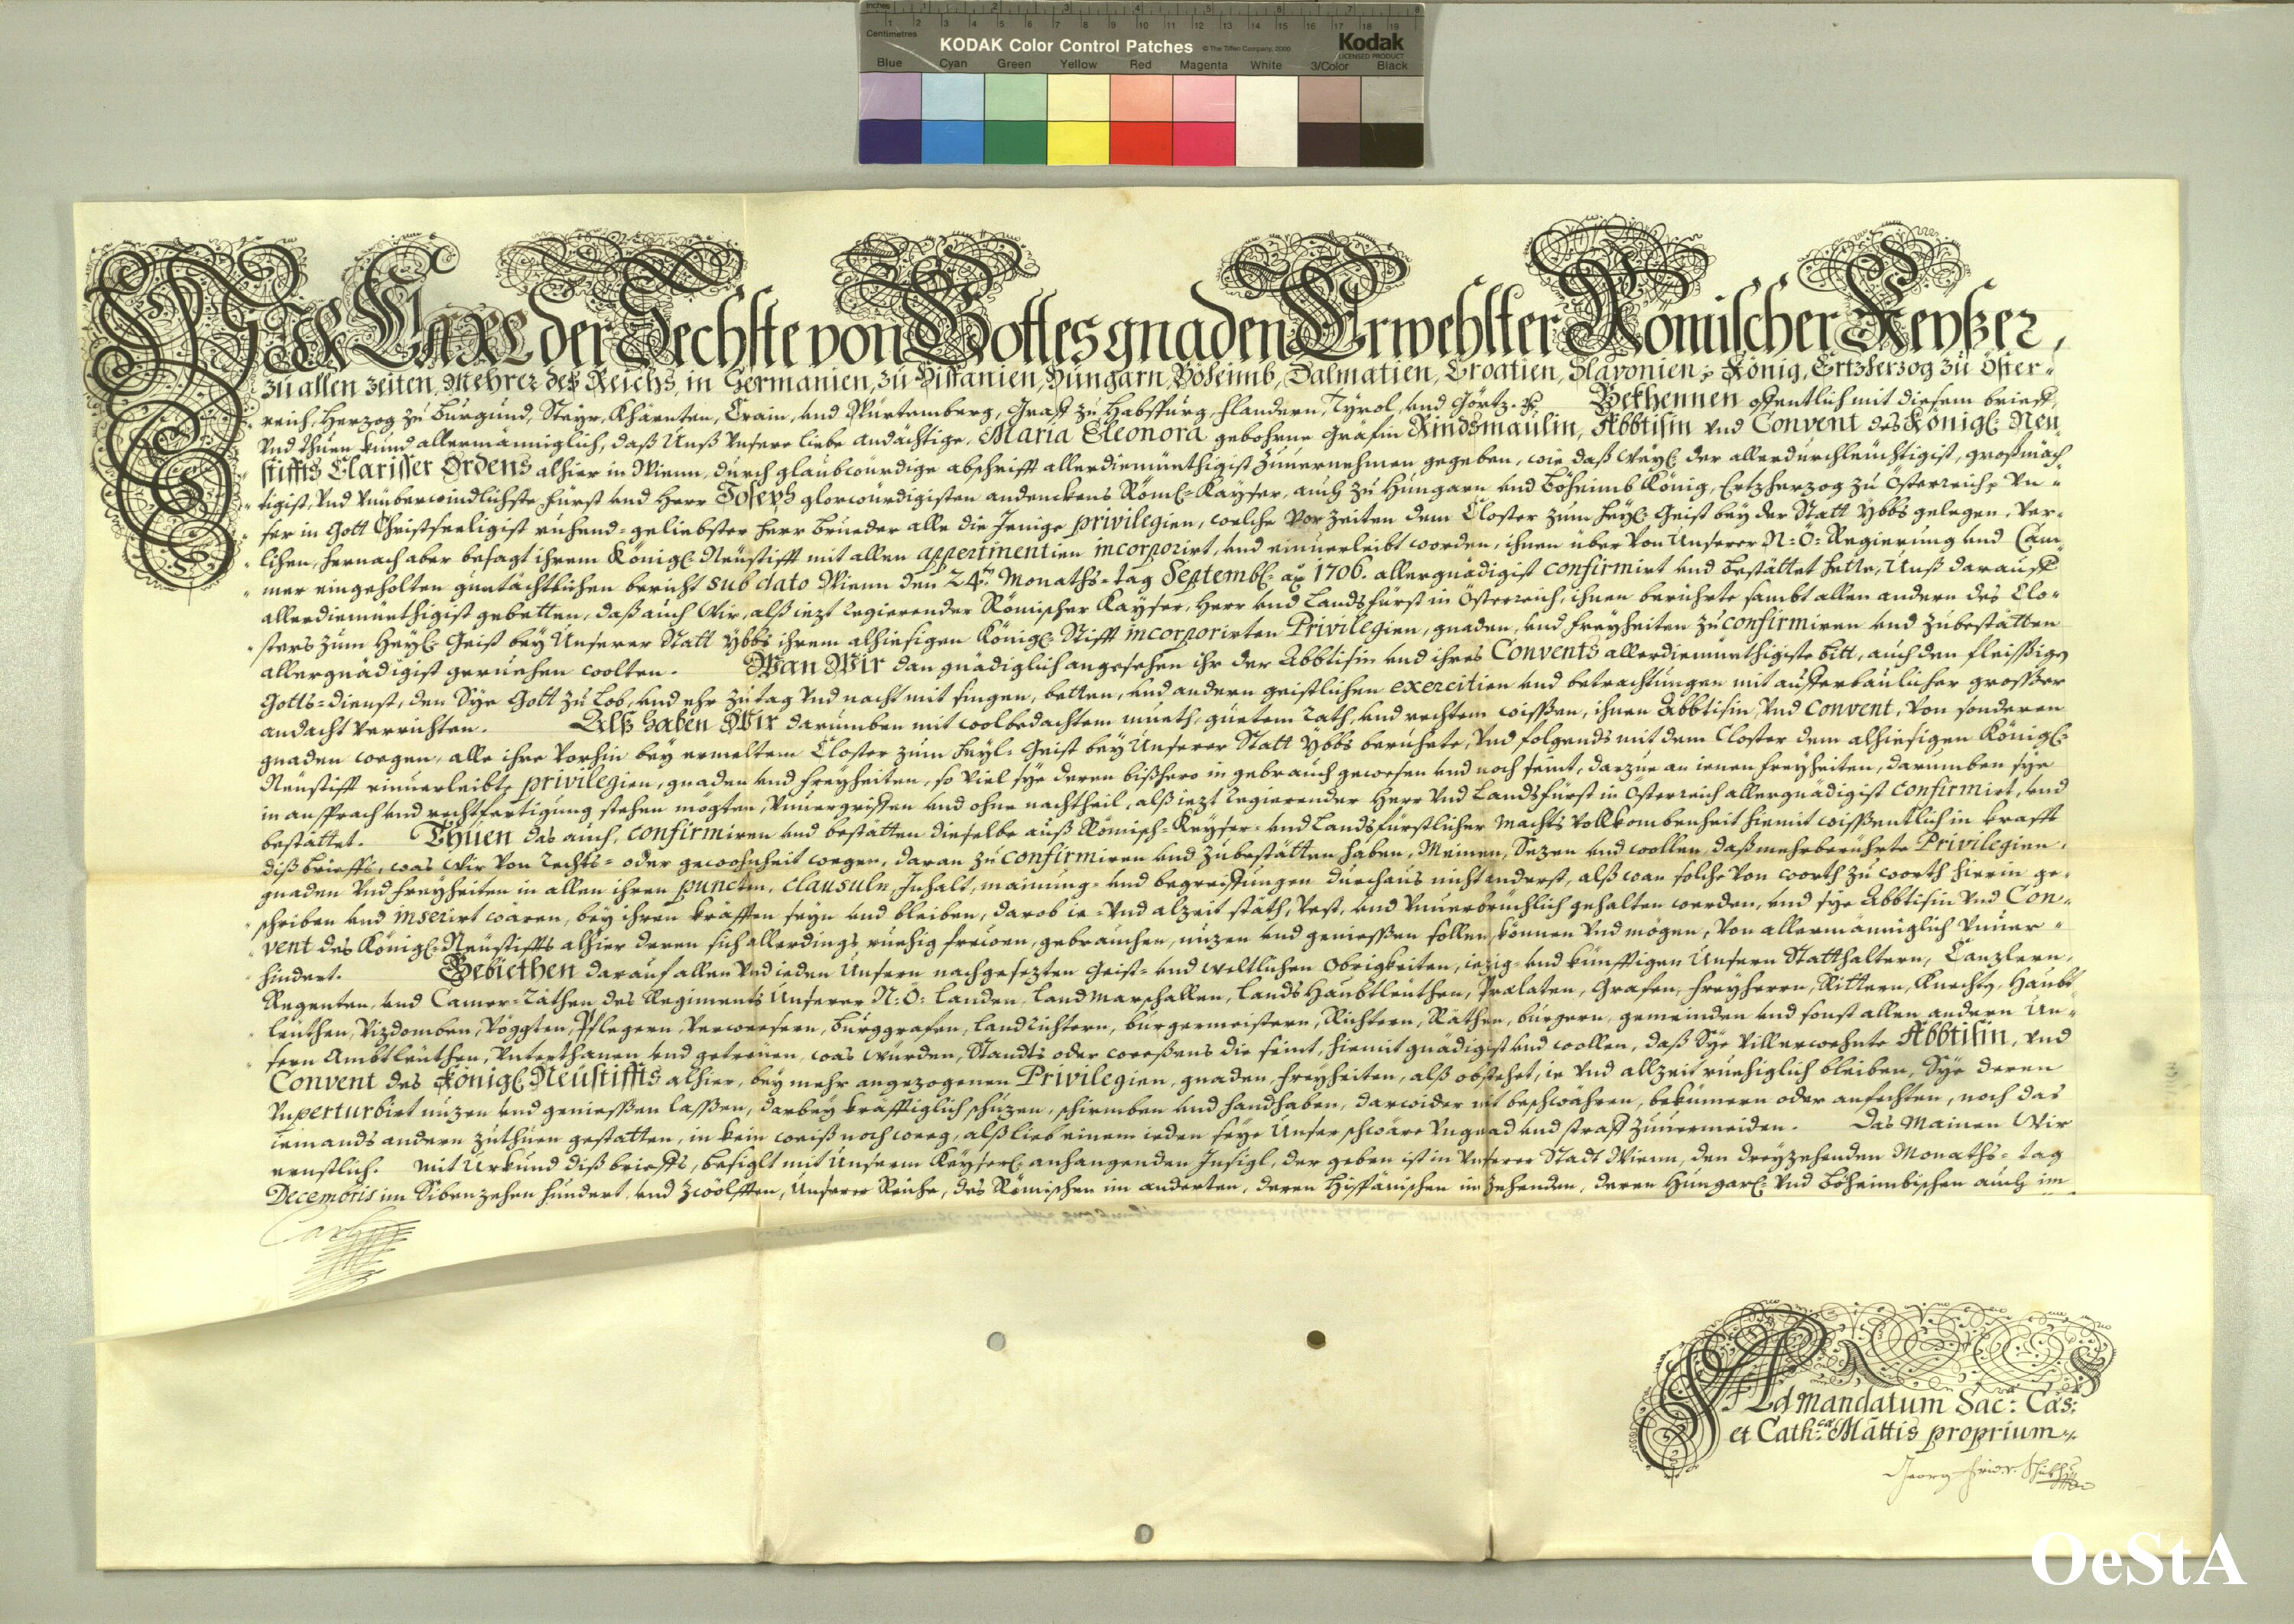 Inches 1 2 3 4 5 6 7 8
Centimetres 1 2 3 4 5 6 7 8 9 10 11 12 13 14 15 16 17 18 19
KODAK Color Control Patches © The Tiffen Company, 2000 Kodak
LICENSED PRODUCT
Blue Cyan Green Yellow Red Magenta White 3/Color Black
WIR CARL der Sechste von Gottes gnaden Erwehlter Römischer Keyßer,
zu allen zeiten, Mehrer deß Reichs, in Germanien, zu Hispanien, Hungarn, Böheimb, Dalmatien, Croatien, Slavonien, König, Ertzherzog zu Öster-
reich, Herzog zu Burgund, Steyr, Khärnten, Crain, und Würtemberg, Graff zu Habspurg, Flandern, Tyrol, und Görtz. Bekhennen offentlich mit diesem brieff,
Und thuen kund allermänniglich, daß Unß Unsere liebe andächtige, Maria Eleonora gebohrne Gräfin Rindsmaulin, Abbtisin und Convent des Königl: Neu
stiffts Clarisser Ordens alhier in Wienn, durch glaubwürdige abschrifft allerdiemüthigist zuuernehmen gegeben, wie daß Weyl: der allerdurchleüchtigist, großmäch
tigist, Und Unüberwindlichste Fürst und Herr Joseph glorwürdigisten andenckens Röml: Kayser, auch zu Hungarn und Böheimb König, Ertzherzog zu Österreich, Un-
ser in Gott Christseeligist ruhend-geliebster Herr Brueder alle die Jenige privilegien, welche Vor zeiten dem Closter zum Heyl: Geist bey der Statt Ybbs gelegen, Ver-
lihen, hernach aber besagt ihrem Königl: Neüstifft mit allen appertinentien incorporirt, und einuerleibt worden, ihnen über Von Unserer N: Ö: Regierung und Cam-
mer eingeholten guetächtlichen bericht sub dato Wienn den 24ten Monaths-tag Septembl: ao 1706. allergnädigist confirmirt und bestättet hette, Unß darauff
allerdiemüethigist gebetten, daß auch Wir, alß iezt Regierender Römischer Kayser, Herr und Landsfürst in Österreich, ihnen berührte sambt allen andern des Clo-
sters zum Heyl: Geist bey Unserer Statt Ybbs ihrem alhiesigen Königl: Stifft incorporirten Privilegien, gnaden, und Freyheiten zu confirmiren und zubestätten
allergnädigist geruehen wolten. Wan Wir dan gnädiglich angesehen ihr der Abbtisin und ihres Convents allerdiemüethigiste bitt, auch den fleissigen
Gotts-dienst, den Sye Gott zu Lob, und ehr zu tag Und nacht mit singen, betten, und andern geistlichen exercitien und betrachtungen mit aufferbaulicher grosser
andacht verrichten. Alß haben Wir darumben mit wolbedachtem mueth, guetem Rath, und rechtem wissen, ihnen Abbtisin, Und Convent, Von sonderen
gnaden wegen, alle ihre Vorhin bey ermeltem Closter zum Heyl: Geist bey Unserer Statt Ybbs berührte, Und folgends mit dem Closter dem alhiesigen Königl:
Neüstifft einuerleibte privilegien, gnaden und Freyheiten, so viel sye deren bißhero in gebrauch gewesen und noch seint, darzue an ienen Freyheiten, darumben sye
in anspruch und rechtfertigung stehen mögten, Unuergriffen und ohne nachtheil, alß iezt Regierender Herr Und Landsfürst in Österreich allergnädigist confirmirt, und
bestättet. Thuen das auch, confirmiren und bestätten dieselbe auß Römisch-Keyser- und Landsfürstlicher Machts Vollkombenheit hiemit wissentlich in krafft
diß brieffs, was Wir Von Rechts- oder gewohnheit wegen, daran zu confirmiren und zubestätten haben, Meinen, Sezen und wollen, daß mehrberührte Privilegien,
gnaden Und Freyheiten in allen ihren puncten, clausuln, Inhalt, mainung- und begreiffungen durchaus nicht anderst, alß wan solche Von worth zu worth hierin ge-
schriben und inserirt wären, bey ihren kräfften seyn und bleiben, darob ie- Und alzeit stäth, Vest, und Unuerbrüchlich gehalten werden, und sye Abbtisin Und Con-
vent des Königl: Neüstiffts alhier deren sich allerdings ruehig freuen, gebrauchen, nuzen und geniessen sollen, können Und mögen, Von allermänniglich Unuer-
hindert. Gebiethen darauf allen Und ieden Unsern nachgesezten Geist- und weltlichen Obrigkeiten, iezig- und künfftigen Unsern Statthaltern, Canzlern,
Regenten, und Camer-Räthen des Regiments Unserer N: Ö: Landen, Landmarschallen, Lands Haubtleüthen, Prælaten, Grafen, Freyherrn, Rittern, Knechten, Haubt-
leüthen, Vizdomben, Vöggten, Pflegern, Verwesern, Burggrafen, Landrichtern, Burgermeistern, Richtern, Räthen, burgern, gemeinden und sonst allen andern Un-
sern Ambtleüthen, Unterthanen und getreüen, was würden, Standts oder weesßens die seint, hiemit gnädigist und wollen, daß Sye villerwehnte Abbtisin, und
Convent des Königl: Neüstiffts alhier, bey mehr angezogenen Privilegien, gnaden, Freyheiten, alß obstehet, ie Und allzeit ruehiglich bleiben, Sye deren
Unperturbirt nuzen und geniessen lassen, darbey kräfftiglich schuzen, schirmben und handhaben, darwider nit beschwähren, bekümern oder anfechten, noch das
iemands andern zuthuen gestatten, in kein weiß noch weeg, alß lieb einem ieden seye Unser schwäre Ungnad und straff zuuermeiden. Das Mainen Wir
ernstlich. Mit Urkund diß brieffs, besiglt mit Unserm Keyserl: anhangenden Insigl, der geben ist in Unserer Stadt Wienn, den dreyzehenden Monaths-tag
Decembris im Sibenzehen hundert, und zwölfften, Unserer Reiche, des Römischen im anderten, deren Hispanischen im zehenden, deren Hungarl: Und Böheimbischen auch im
Carl
Ad Mandatum Sac: Cæs:
et Cath: Mattis proprium
Georg Fridr: Schikh
OeStA